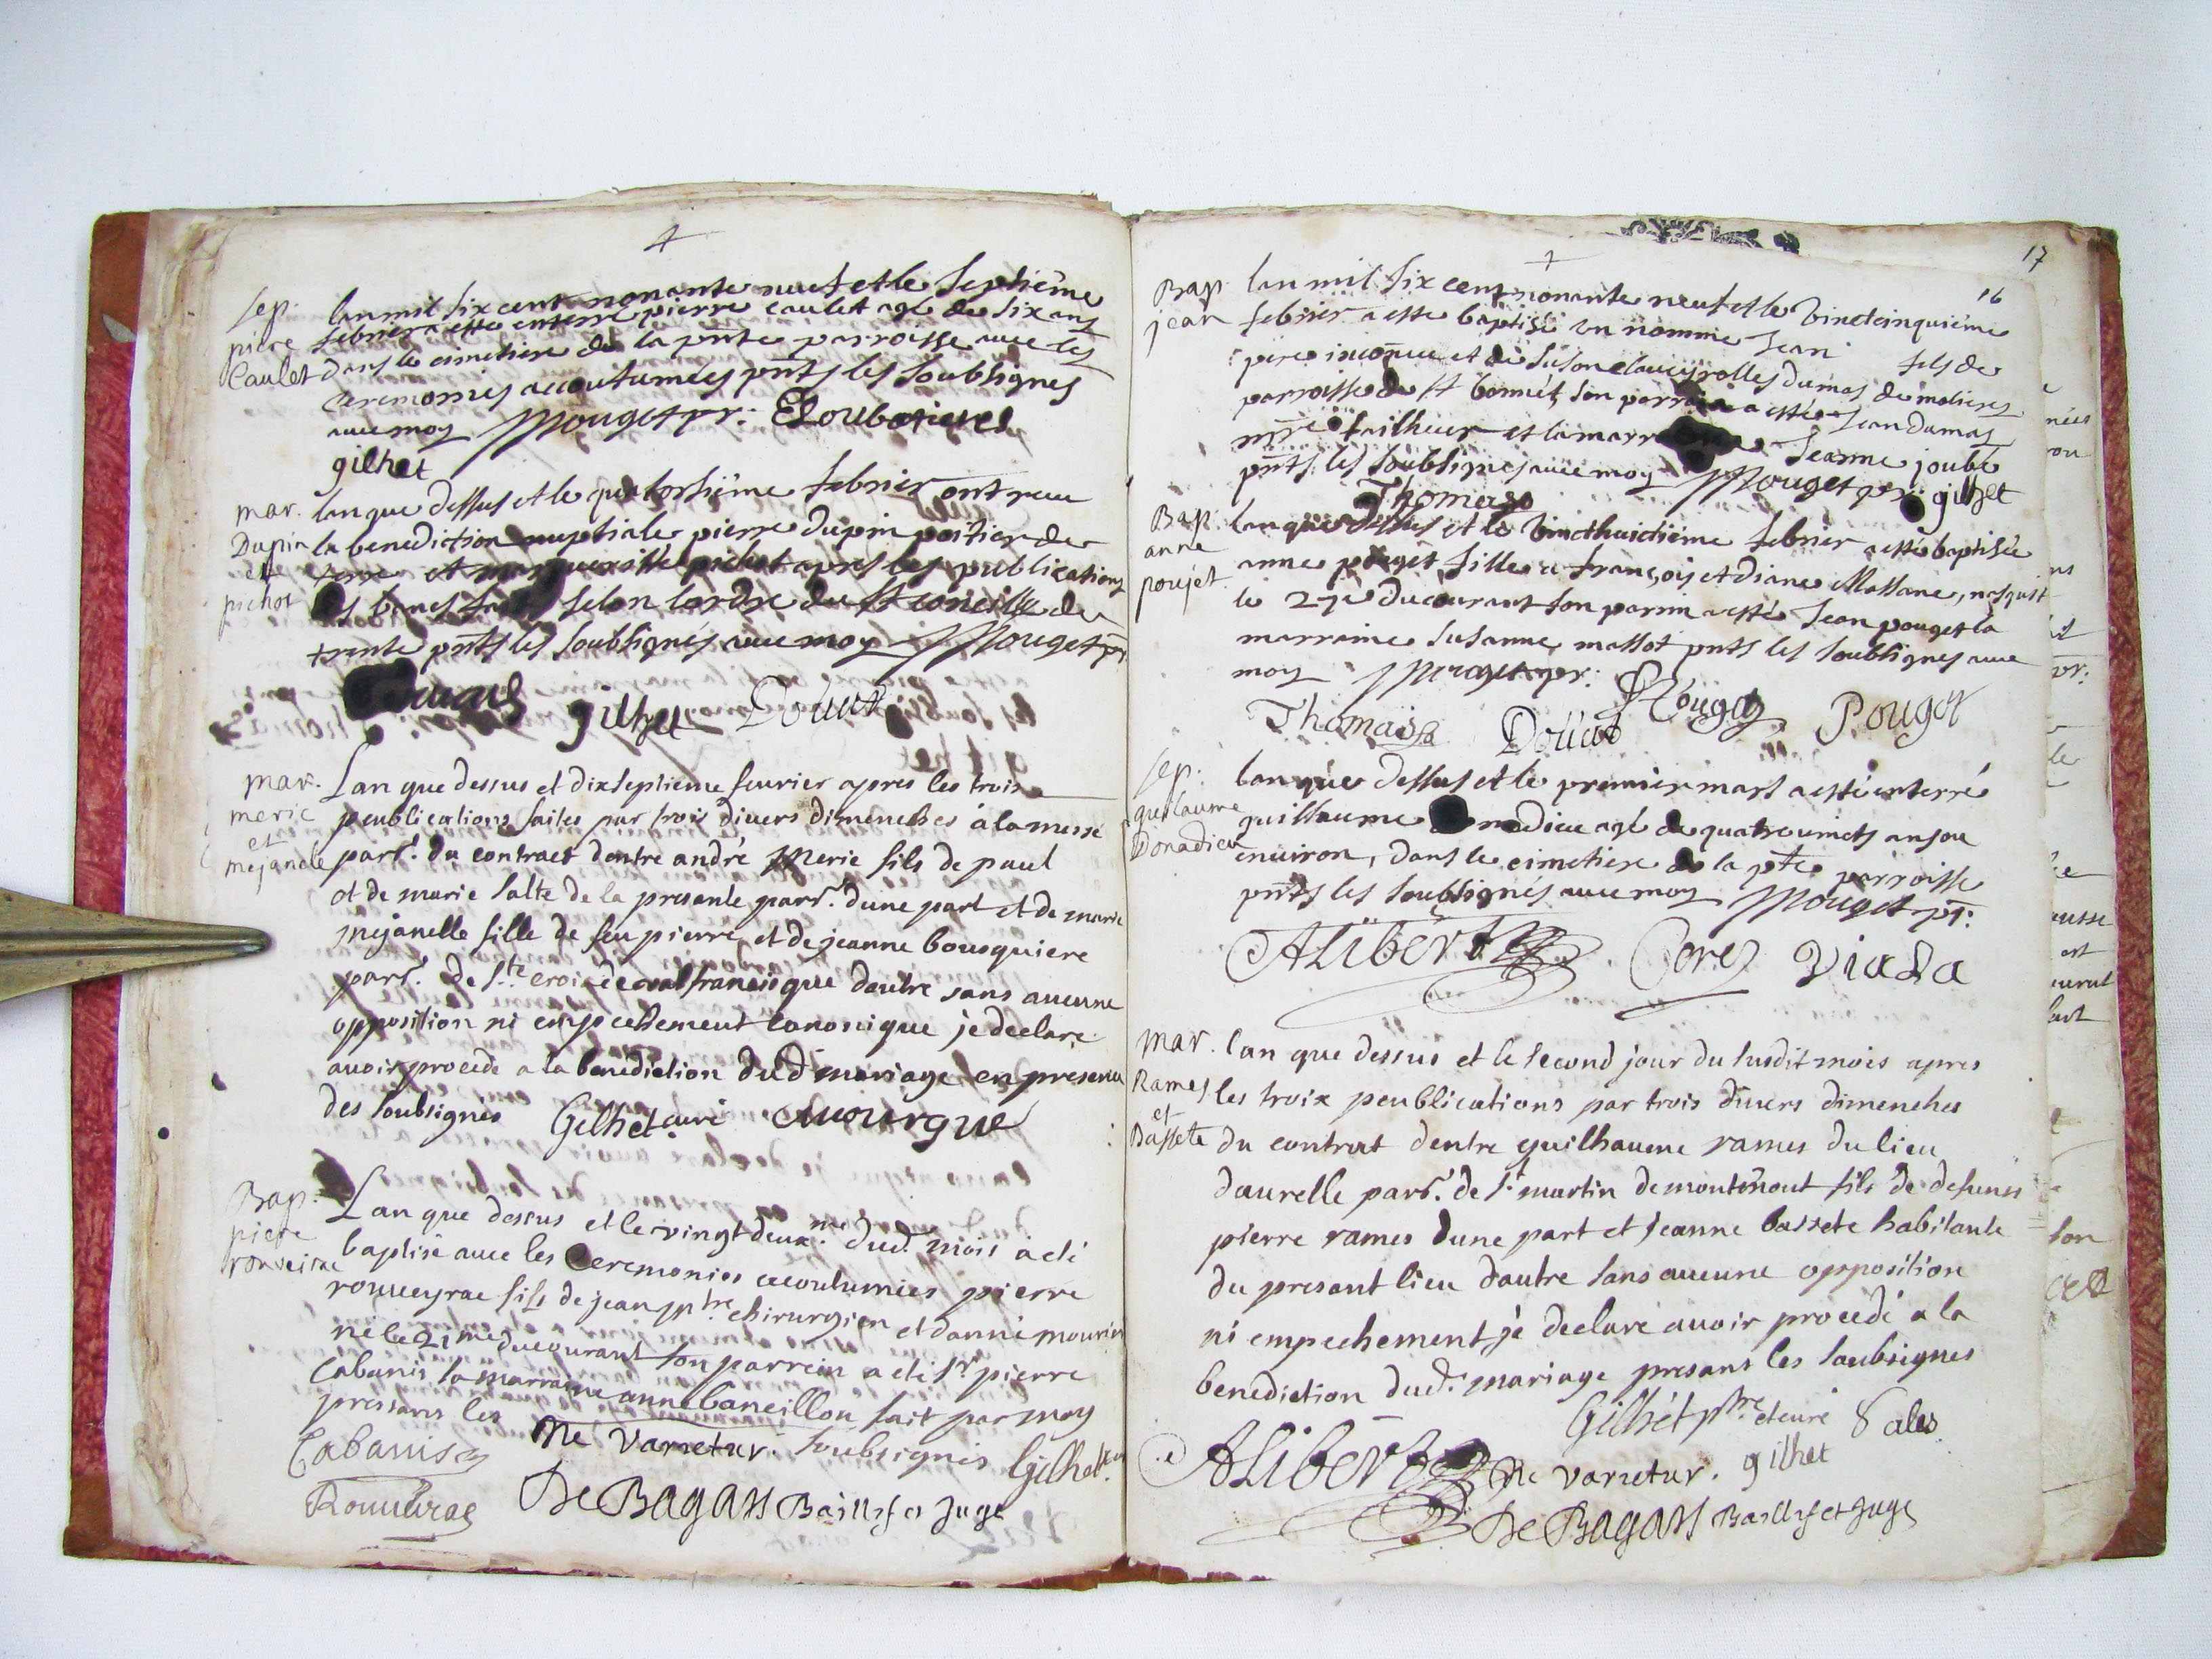 4
Sep. lan mil six cent nonante neuf et le septiéme
piere febrier a este enterré pierre caulet agé de six ans
Caulet dans le cimetiere de la pnte parroisse avec les
ceremonies accoutumées pnts les soubsignes
avec moy Mouget pr: Eloubatieres
gilhet
mar. lan que dessus et le quatorsiéme febrier ont receu
Dupin la benediction nuptiale pierre dupin poitier de
et terre et margueritte pichot apres les publications
pichot des bancs selon lordre du st concille de
trente pnts les soubsignés avec moy Mouget pr
gilhet Douet
mar. Lan que dessus et dixseptieme feuvrier apres les trois
meric peublications faites par trois divers dimenches à la messe
et
mejanele parr. du contract dentre andré Meric fils de paul
et de marie salte de la presante parr. dune part et de marie
mejanelle fille de feu pierre et de jeanne bousquiere
parr. de Ste croix de valfrancisque dautre sans aucune
opposition ni empechement canonique je declare
avoir procedé a la benediction dud mariage en presence
des soubsignés Gilhet curé Mourgue
Bap. Lan que dessus et le vingt deuxme dud. mois a eté
piere baptisé avec les Ceremonies accoutumées pierre
rouveirac rouveyrac fils de jean mtre chirurgien et danne mourier
né le 21me du courant son parrein a eté sr pierre
Cabanis la marraine anne baneillon fait par moy
presans les soubsignés Gilhet
Cabanis Ne varietur.
Rouveirac De Bagars Baillif et Juge
17
16
Bap. lan mil six cent nonante neuf et le vinctcinquiéme
jean febrier a este baptisé un nommé Jean fils de
pere inconnu et de suson clauseyrolles du mas de molieres
parroisse de st bonnet, son parrain a esté Jean dumas
mre tailheur et la marraine Jeanne joubé
pnts les soubsignes avec moy Mouget pr. gilhet
Thomasso
Bap. lan que dessus et le vincthuictiéme febrier a esté baptisée
anne anne pouget fille a françois et diane Massane, nasquit
poujet le 27e du courant son parrin a esté Jean pouget la
marraine susanne massot pnts les soubsignes avec
moy Mouget pr:
Pouget
Thomasso Douet Pouget
Sep. lan que dessus et le premier mars a esté enterré
guilaume guillaume Donadieu agé de quatre vincts ans ou
Donadieu environ, dans le cimetiere de la pte parroisse
pnts les soubsignés avec moy Mouget pr:
Alibert Cores Viala
mar. lan que dessus et le second jour du susdit mois apres
Rames les troix peublications par trois divers dimenches
et
Bassete du contrat dentre guilhaume rames du lieu
daurelle parr. de st martin de fils de defunt
pierre rames dune part et jeanne bassete habitante
du presant lieu dautre sans aucune opposition
ni empechement je declare avoir procedé a la
benediction dud. mariage presans les soubsignes
Gilhet ptre et curé Sales
Alibert Ne varietur. gilhet
De Bagars Baillif et Juge